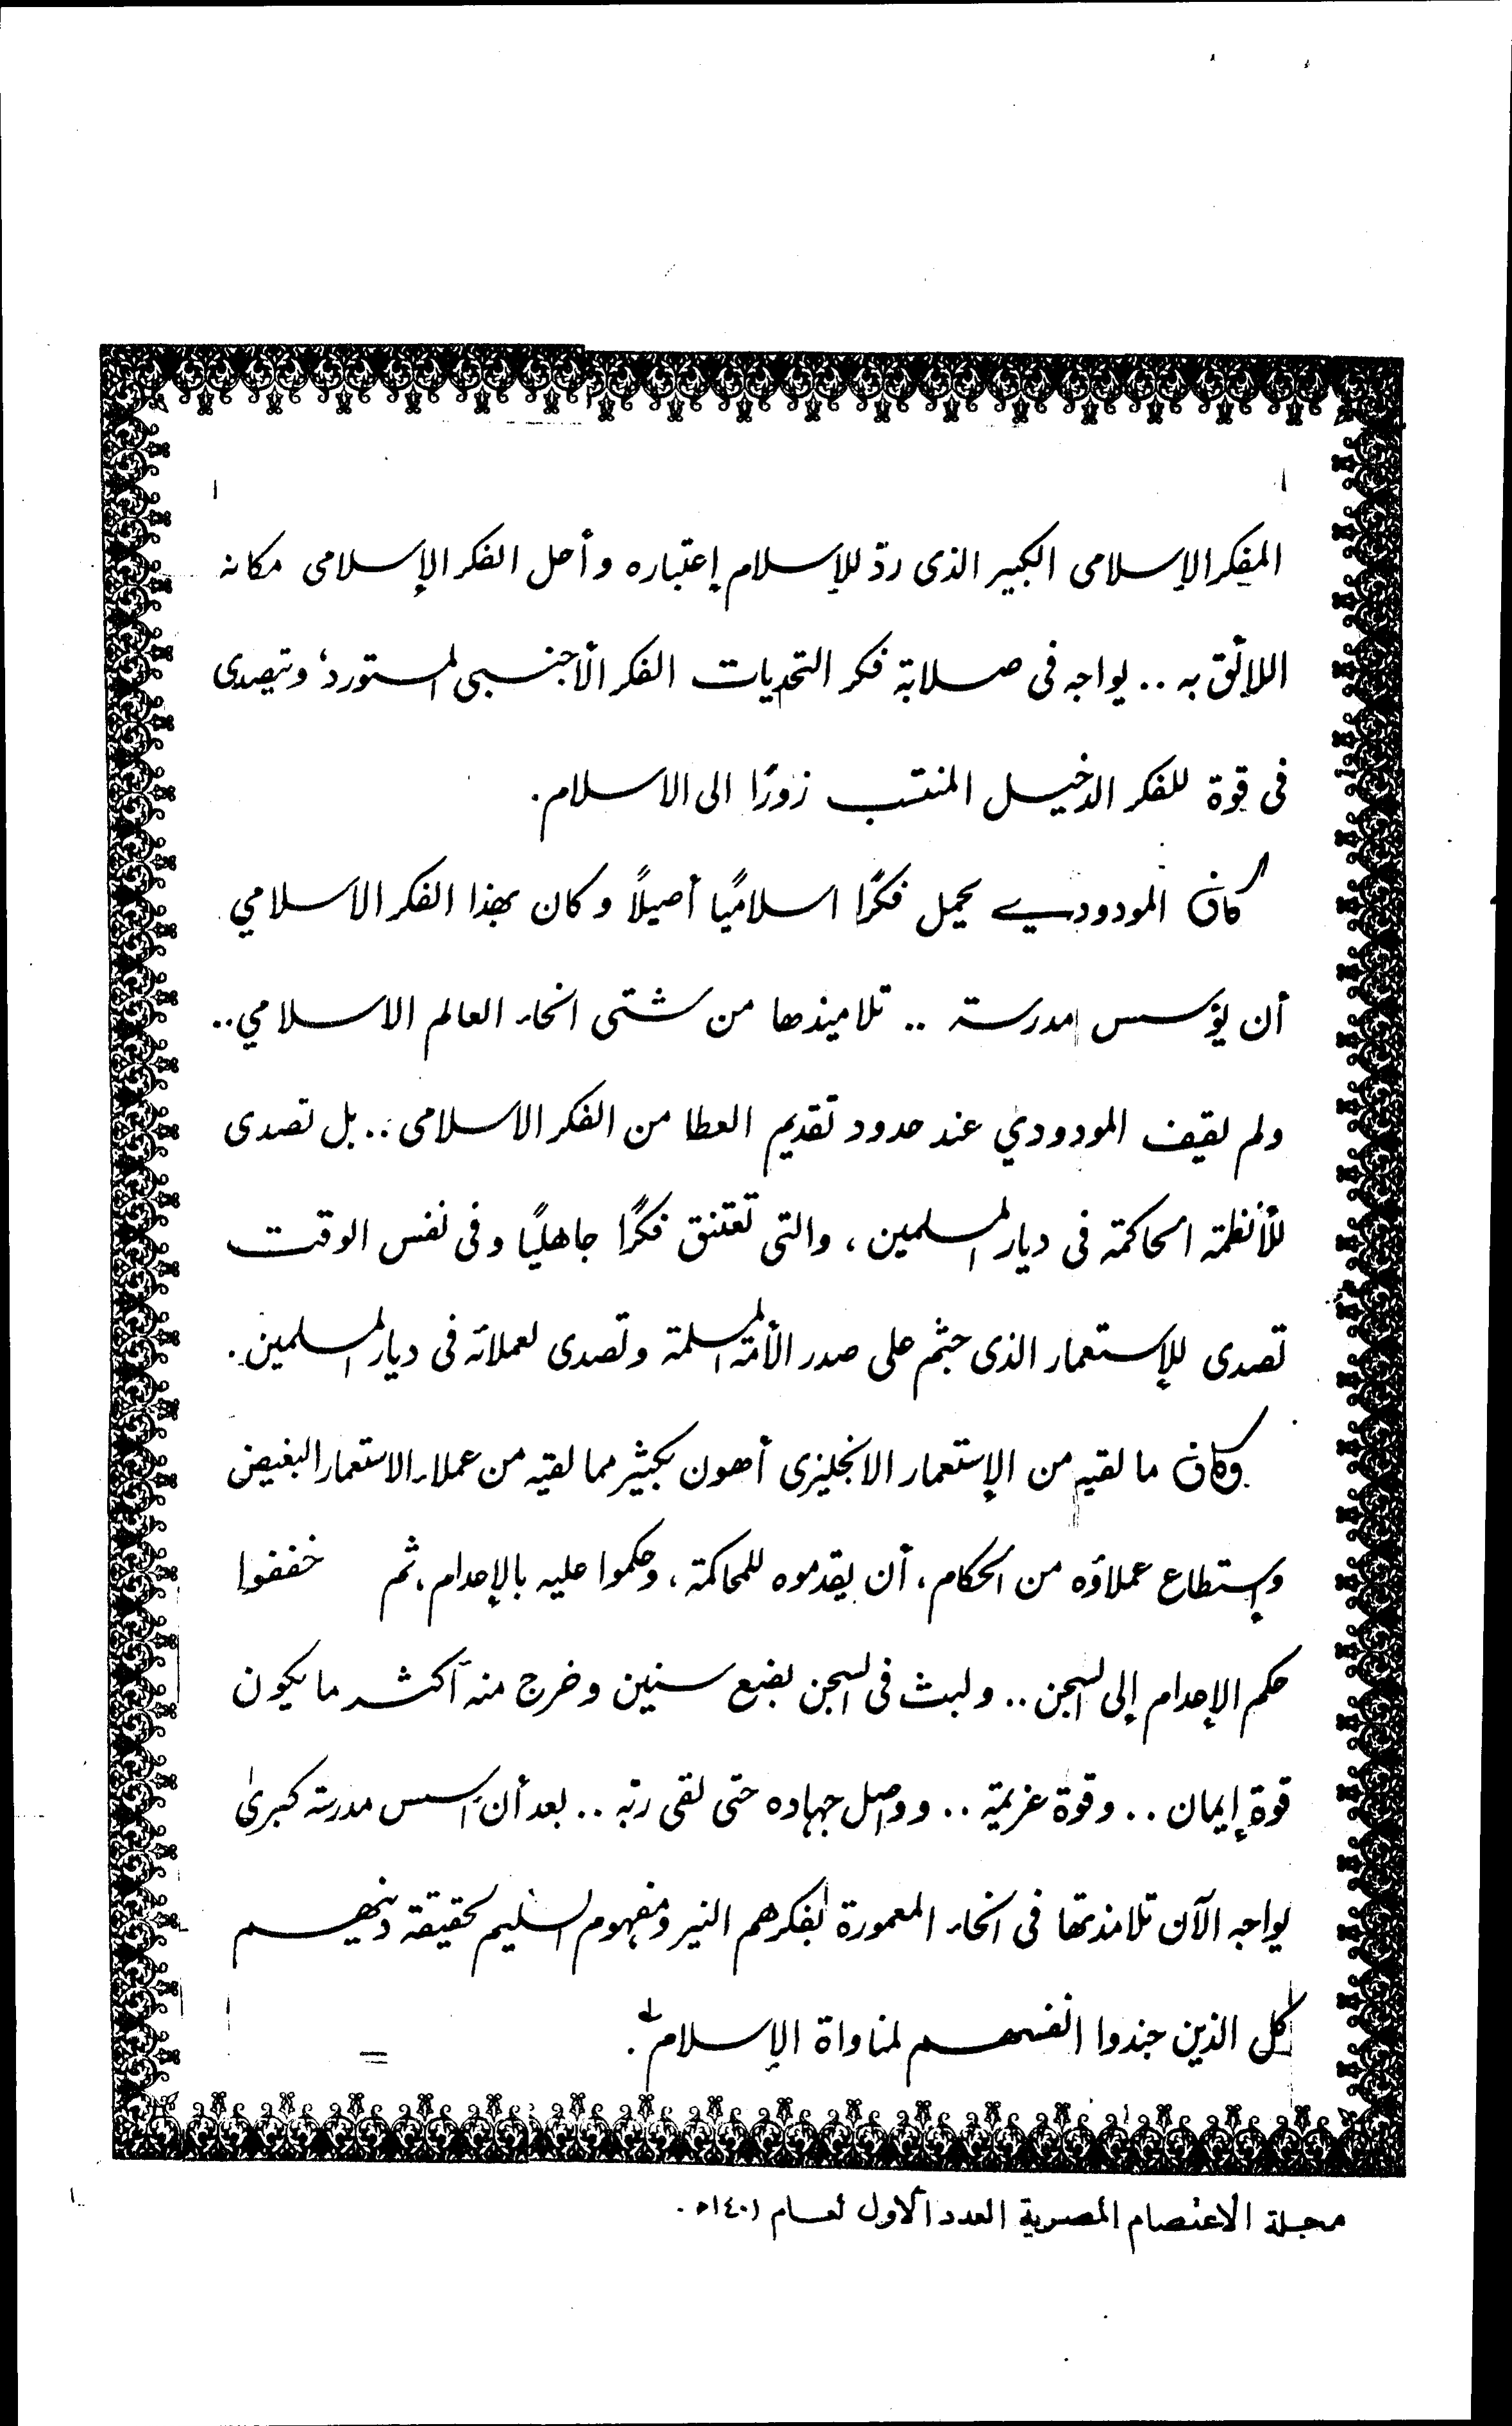 المفكر الإسلامى الكبير الذى ردّ للإسلام إعتباره وأحل الفكر الإسلامى مكانه
اللائق به .. يواجه فى صلابة فكر التحديات الفكر الأجنبى المستورد، ويتصدى
فى قوة للفكر الدخيل المنتسب زورًا الى الاسلام.
كان المودودي يحمل فكرًا اسلاميًا أصيلًا وكان بهذا الفكر الاسلامي
أن يؤسس مدرسة .. تلاميذها من شتى انحاء العالم الاسلامي ..
ولم يقف المودودي عند حدود تقديم العطا من الفكر الاسلامى .. بل تصدى
للأنظمة الحاكمة فى ديار المسلمين ، والتى تعتنق فكرًا جاهليًا وفى نفس الوقت
تصدى للإستعمار الذى جثم على صدر الأمة المسلمة وتصدى لعملائه فى ديار المسلمين.
وكان ما لقيه من الإستعمار الانجليزى أهون بكثير مما لقيه من عملاء الاستعمار البغيض
وإستطاع عملاؤه من الحكام ، أن يقدموه للمحاكمة ، وحكموا عليه بالإعدام ، ثم خففوا
حكم الإعدام إلى السجن .. ولبث فى السجن بضع سنين وخرج منه أكثر ما يكون
قوة إيمان .. وقوة عزيمة .. وواصل جهاده حتى لقى ربه .. بعد أن أسس مدرسة كبرى
يواجه الآن تلامذتها فى انحاء المعمورة بفكرهم النير ومفهوم السليم لحقيقة دينهم
كل الذين جندوا انفسهم لمناواة الإسلام .
مجلة الاعتصام المصرية العدد الأول لعام ١٤٠١ه .